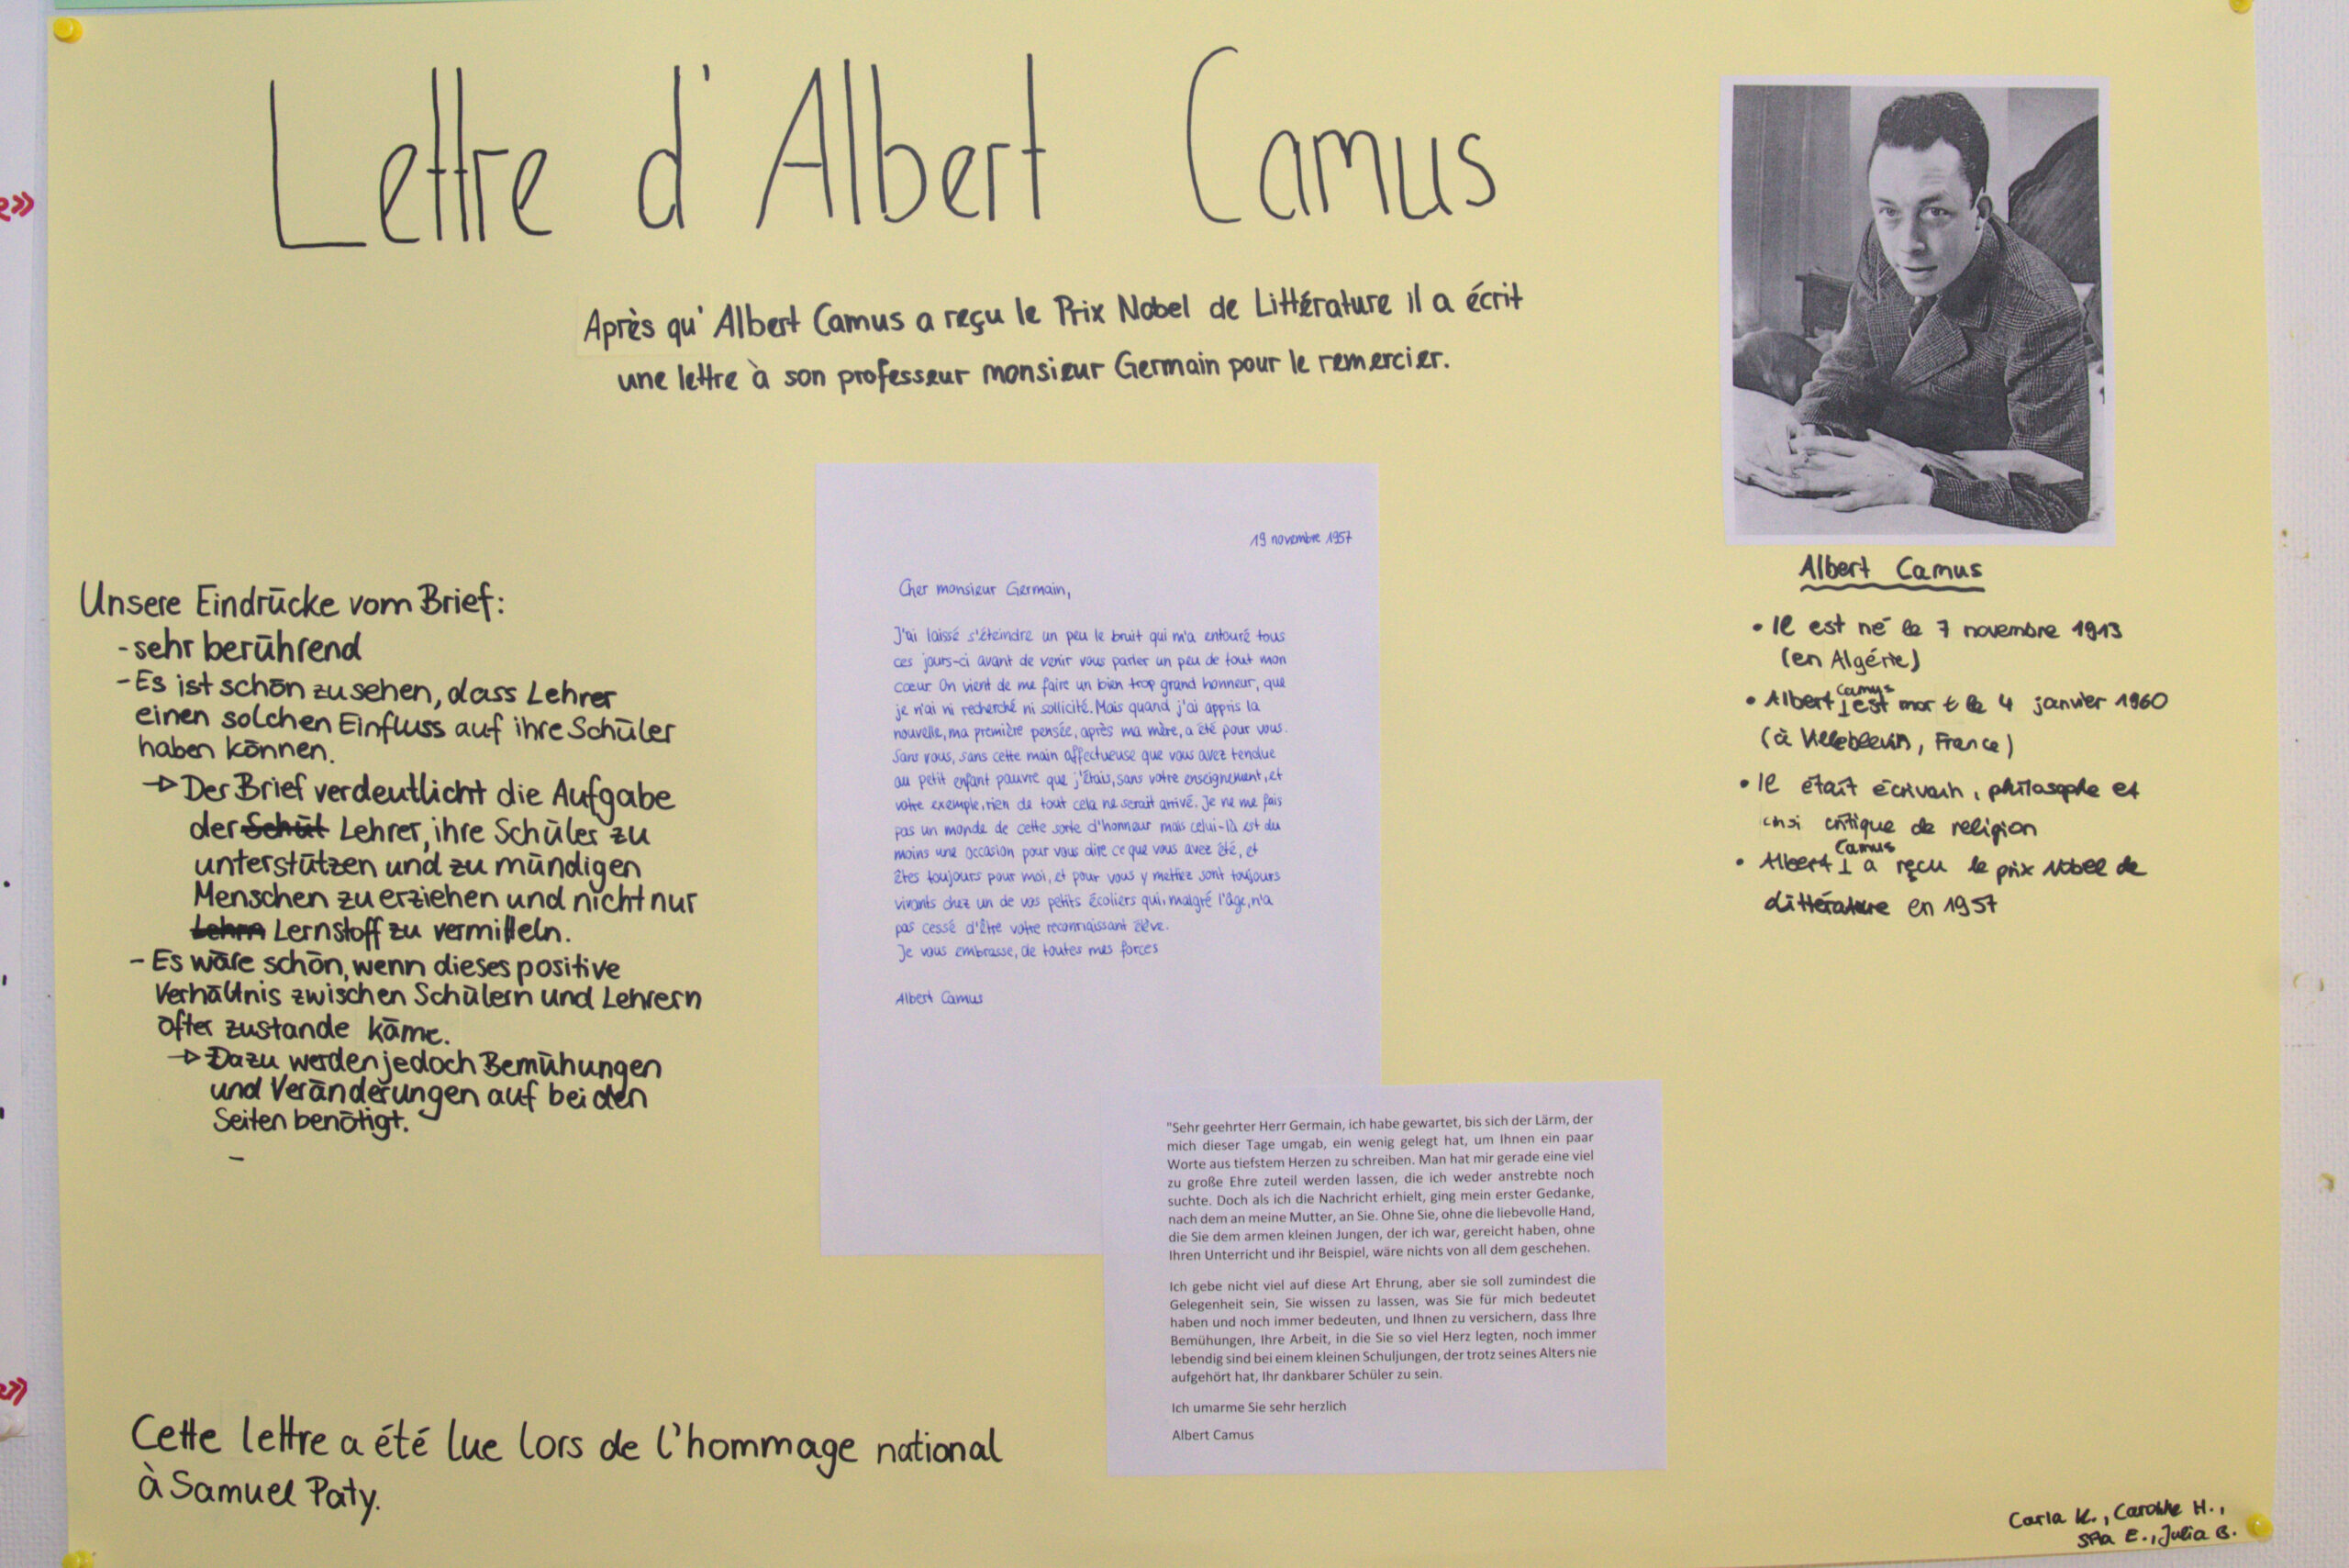 Lettre d'Albert Camus
Après qu'Albert Camus a reçu le Prix Nobel de Littérature il a écrit
une lettre à son professeur monsieur Germain pour le remercier.
Unsere Eindrücke vom Brief:
- sehr berührend
- Es ist schön zu sehen, dass Lehrer
einen solchen Einfluss auf ihre Schüler
haben können.
→ Der Brief verdeutlicht die Aufgabe
der Schül Lehrer, ihre Schüler zu
unterstützen und zu mündigen
Menschen zu erziehen und nicht nur
Lehrn Lernstoff zu vermitteln.
- Es wäre schön, wenn dieses positive
Verhältnis zwischen Schülern und Lehrern
öfter zustande käme.
→ Dazu werden jedoch Bemühungen
und Veränderungen auf beiden
Seiten benötigt.
-
Cette lettre a été lue lors de l'hommage national
à Samuel Paty.
19 novembre 1957
Cher monsieur Germain,
J'ai laissé s'éteindre un peu le bruit qui m'a entouré tous
ces jours-ci avant de venir vous parler un peu de tout mon
cœur. On vient de me faire un bien trop grand honneur, que
je n'ai ni recherché ni sollicité. Mais quand j'ai appris la
nouvelle, ma première pensée, après ma mère, a été pour vous.
Sans vous, sans cette main affectueuse que vous avez tendue
au petit enfant pauvre que j'étais, sans votre enseignement, et
votre exemple, rien de tout cela ne serait arrivé. Je ne me fais
pas un monde de cette sorte d'honneur mais celui-là est du
moins une occasion pour vous dire ce que vous avez été, et
êtes toujours pour moi, et pour vous y mettiez sont toujours
vivants chez un de vos petits écoliers qui, malgré l'âge, n'a
pas cessé d'être votre reconnaissant élève.
Je vous embrasse, de toutes mes forces
Albert Camus
"Sehr geehrter Herr Germain, ich habe gewartet, bis sich der Lärm, der
mich dieser Tage umgab, ein wenig gelegt hat, um Ihnen ein paar
Worte aus tiefstem Herzen zu schreiben. Man hat mir gerade eine viel
zu große Ehre zuteil werden lassen, die ich weder anstrebte noch
suchte. Doch als ich die Nachricht erhielt, ging mein erster Gedanke,
nach dem an meine Mutter, an Sie. Ohne Sie, ohne die liebevolle Hand,
die Sie dem armen kleinen Jungen, der ich war, gereicht haben, ohne
Ihren Unterricht und ihr Beispiel, wäre nichts von all dem geschehen.
Ich gebe nicht viel auf diese Art Ehrung, aber sie soll zumindest die
Gelegenheit sein, Sie wissen zu lassen, was Sie für mich bedeutet
haben und noch immer bedeuten, und Ihnen zu versichern, dass Ihre
Bemühungen, Ihre Arbeit, in die Sie so viel Herz legten, noch immer
lebendig sind bei einem kleinen Schuljungen, der trotz seines Alters nie
aufgehört hat, Ihr dankbarer Schüler zu sein.
Ich umarme Sie sehr herzlich
Albert Camus
Albert Camus
• Il est né le 7 novembre 1913
(en Algérie)
• Albert Camus est mort le 4 janvier 1960
(à Villeblevin, France)
• Il était écrivain, philosophe et
critique de religion
• Albert Camus a reçu le prix Nobel de
littérature en 1957
Carla K., Caroline H.,
E., Julia B.